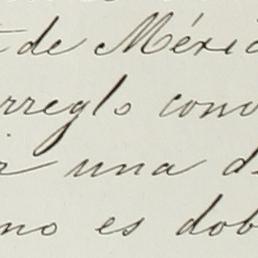 de Méxic
rreglo conv
r una d
no es dob